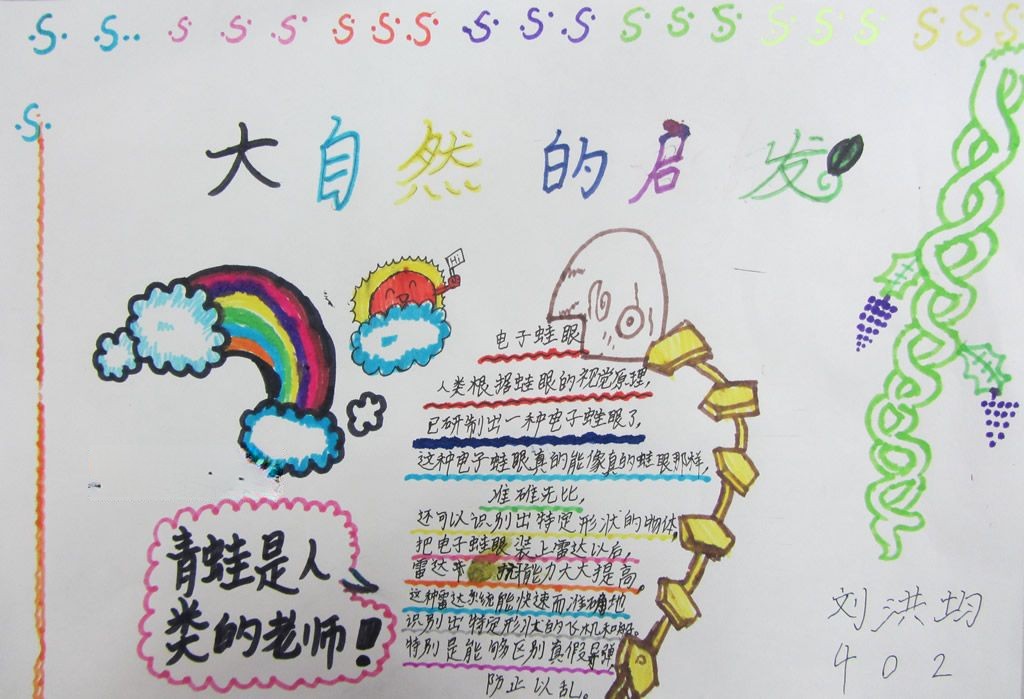 大自然的启发
Hi
电子蛙眼
人类根据蛙眼的视觉原理,
已研制出一种电子蛙眼了,
这种电子蛙眼真的能像真的蛙眼那样,
准确无比,
还可以识别出特定形状的物体,
把电子蛙眼装上雷达以后,
雷达抗干能力大大提高。
这种雷达系统能快速而准确地
识别出特定形状的飞机和
特别是能够区别真假导弹
防止以乱。
青蛙是人
类的老师!
刘洪均
402